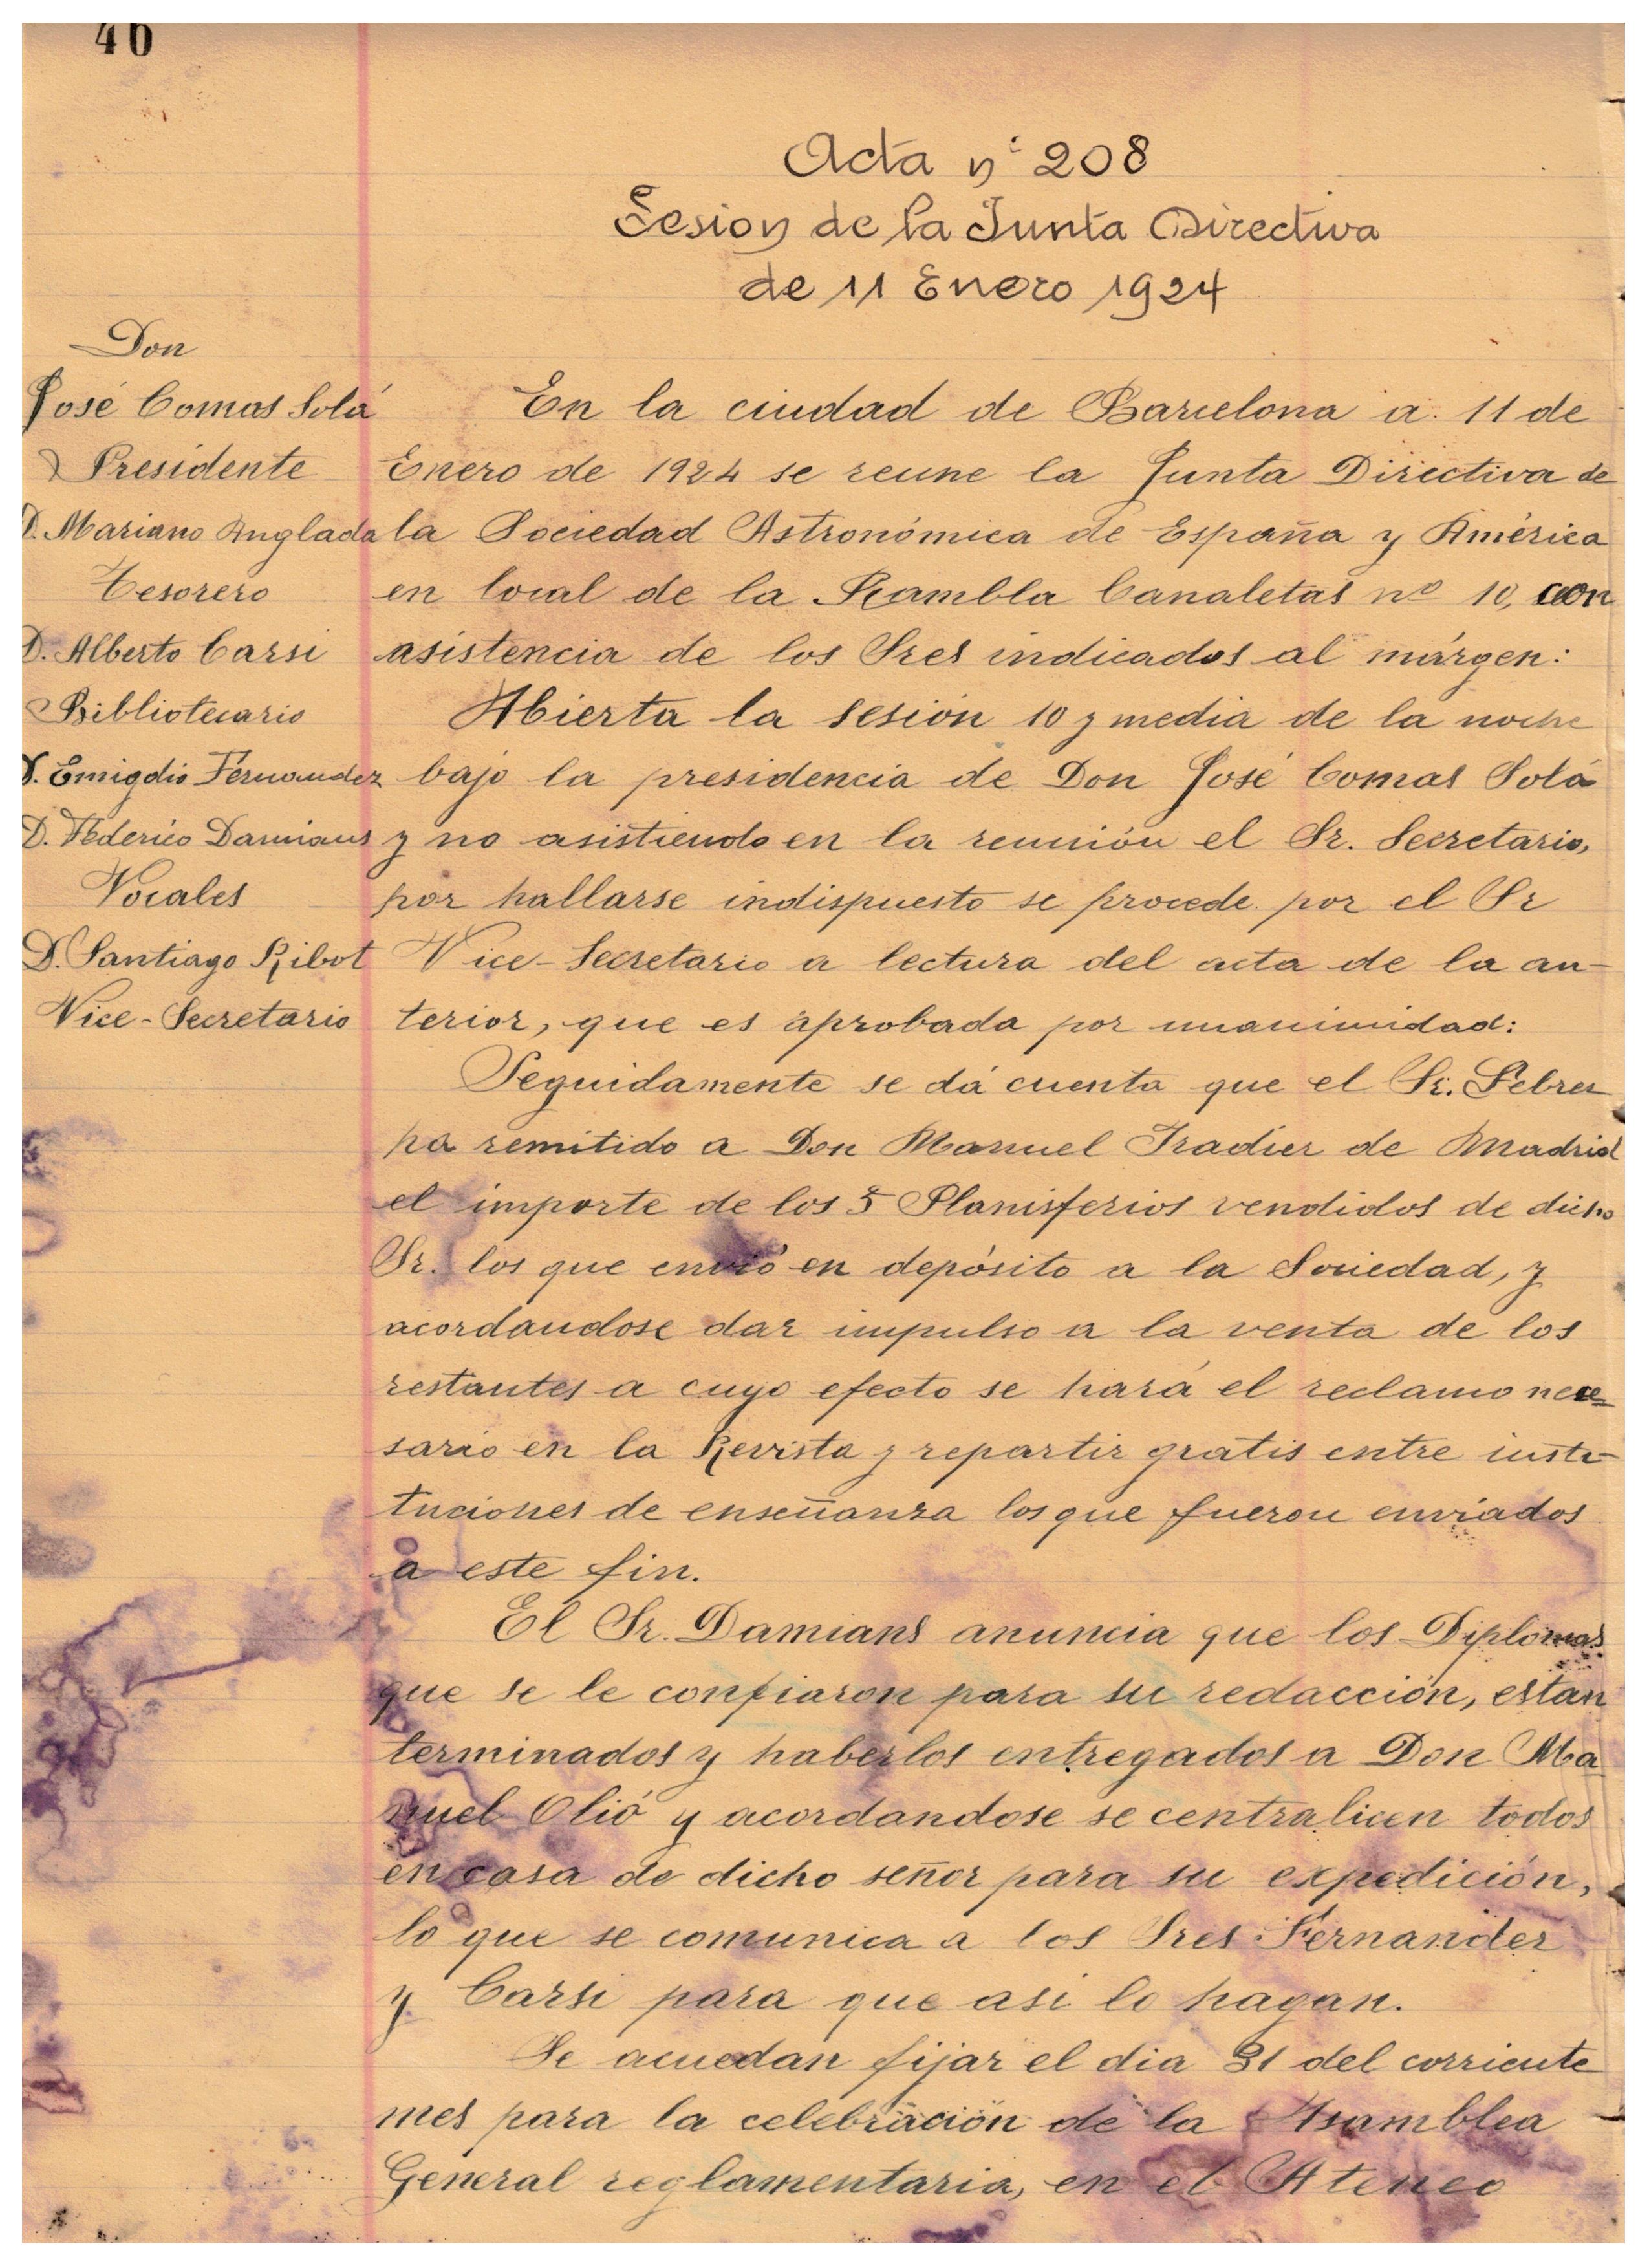 40
Acta nº 208
Sesion de la Junta Directiva
de 11 Enero 1924
Don
José Comas Solá
Presidente
D. Mariano Anglada
Tesorero
D. Alberto Carsi
Bibliotecario
D. Emigdio Fernandez
D. Federico Damians
Vocales
D. Santiago Ribot
Vice-Secretario
En la ciudad de Barcelona a 11 de
Enero de 1924 se reune la Junta Directiva de
la Sociedad Astronómica de España y América
en local de la Rambla Canaletas nº 10, con
asistencia de los Sres indicados al márgen:
Abierta la sesión 10 y media de la noche
bajo la presidencia de Don José Comas Solá
y no asistiendo en la reunión el Sr. Secretario,
por hallarse indispuesto se procede por el Sr
Vice-Secretario a lectura del acta de la an-
terior, que es aprobada por unanimidad:
Seguidamente se dá cuenta que el Sr. Febrer
ha remitido a Don Manuel Iradier de Madrid
el importe de los 5 Planisferios vendidos de dicho
Sr. los que envió en depósito a la Sociedad, y
acordandose dar impulso a la venta de los
restantes a cuyo efecto se hará el reclamo nece-
sario en la Revista y repartir gratis entre insti-
tuciones de enseñanza los que fueron enviados
a este fin.
El Sr. Damians anuncia que los Diplomas
que se le confiaron para su redacción, estan
terminados y haberlos entregados a Don Ma
nuel Olió y acordandose se centralicen todos
en casa de dicho señor para su expedición,
lo que se comunica a los Sres Fernandez
y Carsi para que asi lo hagan.
Se acuedan fijar el dia 31 del corriente
mes para la celebración de la Asamblea
General reglamentaria, en el Ateneo